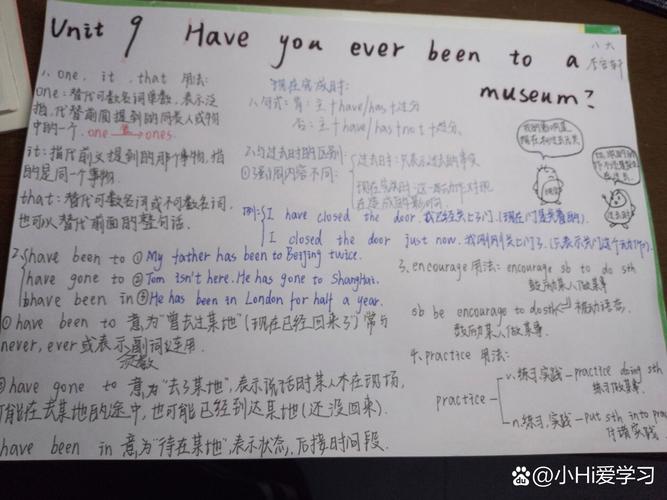 Unit 9 Have you ever been to a
museum?
八六
一、one, it, that 用法:
one: 替代可数名词单数,表示泛
指,代替前面提到的同类人或物
中的一个. one 复→ ones.
it: 指代前文提到的那个事物,指
的是同一个事物.
that: 替代可数名词或不可数名词,
也可以替代前面的整句话.
2. have been to ① My father has been to Beijing twice.
have gone to ② Tom isn't here. He has gone to Shanghai.
have been in ③ He has been in London for half a year.
① have been to 意为"曾去过某地"(现在已经回来了)常与
never, ever 或表示副词连用.
次数
② have gone to 意为"去了某地",表示说话时某人不在现场,
可能在去某地的途中,也可能已经到达某地(还没回来).
have been in 意为"待在某地",表示状态,后接时间段.
现在完成时:
1. 句式: 肯: 主 + have/has + 过分
否: 主 + have/has + not + 过分.
2. 与过去时的区别:
① 强调内容不同:
过去时: 只表示过去的事实
现在完成时: 这一动作对现
在造成的影响
例: I have closed the door. 我已经关上了门. (现在门是关着的)
I closed the door just now. 我刚刚关上门了. (只表示关门这个动作)
我的影响是
现在和过去
过去时
3. encourage 用法: encourage sb to do sth
鼓励某人做某事
sb be encourage to do sth 被动语态.
鼓励某人做某事.
4. practice 用法:
practice
v. 练习,实践 — practice doing sth
练习做某事.
n. 练习,实践 — put sth into prac
付诸实践.
小Hi爱学习